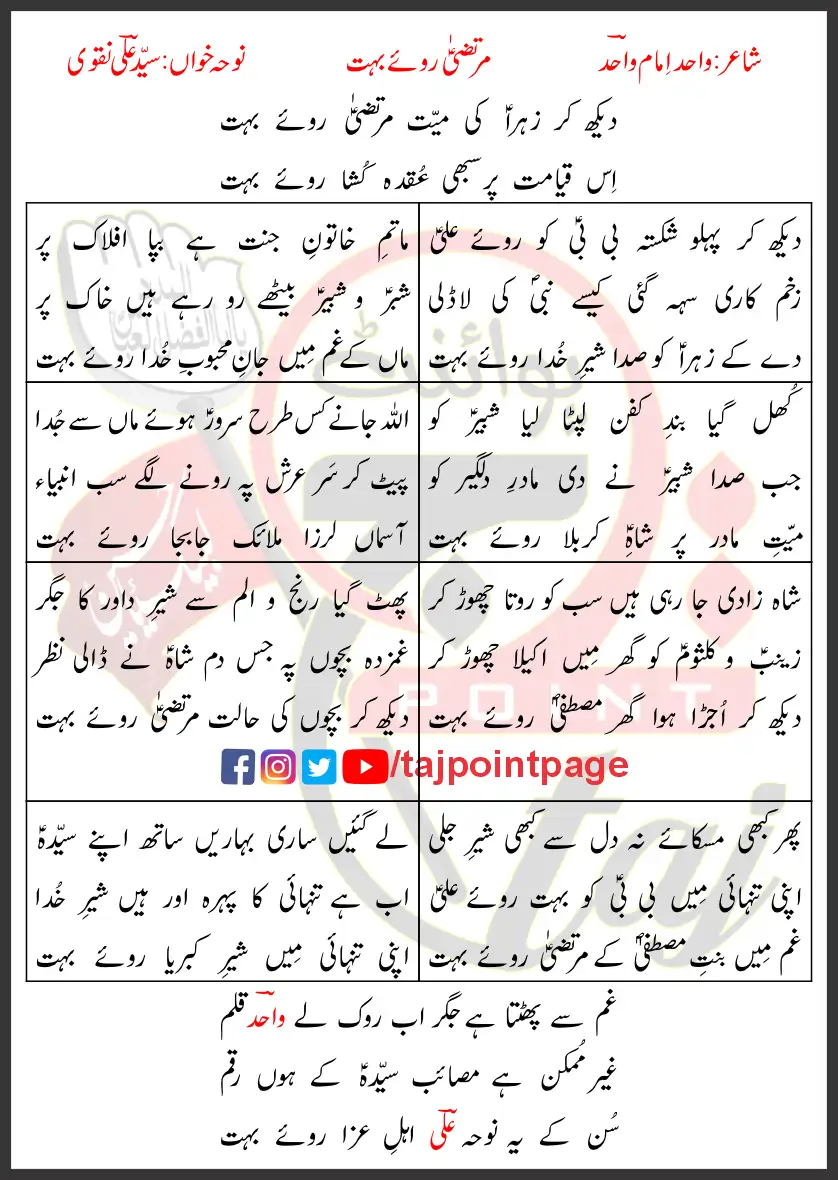 شاعر: واحد اِمام واحدؔ
مرتضیٰؑ روئے بہت
نوحہ خواں: سیّد علیؔ نقوی
دیکھ کر زہراؑ کی میّت مرتضیٰؑ روئے بہت
اِس قیامت پر سبھی عُقدہ کُشا روئے بہت
دیکھ کر پہلو شکستہ بی بیؑ کو روئے علیؑ
زخم کاری سہہ گئی کیسے نبیؐ کی لاڈلی
دے کے زہراؑ کو صدا شیرِ خُدا روئے بہت
ماتمِ خاتونِ جنت ہے بپا افلاک پر
شبرؑ و شبیرؑ بیٹھے رو رہے ہیں خاک پر
ماں کے غم مِیں جانِ محبوبِ خُدا روئے بہت
کُھل گیا بندِ کفن لپٹا لیا شبیرؑ کو
جب صدا شبیرؑ نے دی مادرِ دلگیر کو
میّتِ مادر پر شاہِؑ کربلا روئے بہت
اللہ جانے کس طرح سرورؑ ہوئے ماں سے جُدا
پیٹ کر سَر عرش پہ رونے لگے سب انبیاء
آسماں لرزا ملائک جابجا روئے بہت
شاہ زادی جا رہی ہیں سب کو روتا چھوڑ کر
زینبؑ و کلثومؑ کو گھر مِیں اکیلا چھوڑ کر
دیکھ کر اُجڑا ہوا گھر مصطفیٰؐ روئے بہت
پھٹ گیا رنج و الم سے شیرِ داور کا جگر
غمزدہ بچوں پہ جس دم شاہؑ نے ڈالی نظر
دیکھ کر بچوں کی حالت مرتضیٰؑ روئے بہت
/tajpointpage
پھر کبھی مسکائے نہ دل سے کبھی شیرِ جلی
اپنی تنہائی مِیں بی بیؑ کو بہت روئے علیؑ
غم مِیں بنتِ مصطفیٰؐ کے مرتضیٰؑ روئے بہت
لے گئیں ساری بہاریں ساتھ اپنے سیّدہؑ
اب ہے تنہائی کا پہرہ اور ہیں شیرِ خُدا
اپنی تنہائی مِیں شیرِ کبریا روئے بہت
غم سے پھٹتا ہے جگر اب روک لے واحدؔ قلم
غیر مُمکن ہے مصائب سیّدہؑ کے ہوں رقم
سُن کے یہ نوحہ علیؔ اہلِ عزا روئے بہت
پوائنٹ
POINT
taj